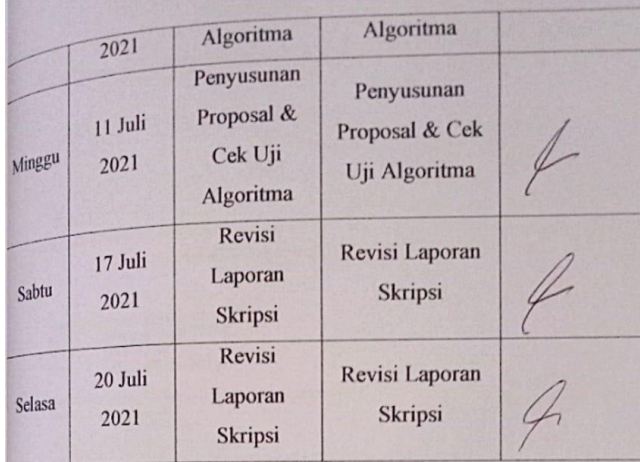 2021
Algoritma
Algoritma
Minggu
11 Juli
2021
Penyusunan
Proposal &
Cek Uji
Algoritma
Penyusunan
Proposal & Cek
Uji Algoritma
Sabtu
17 Juli
2021
Revisi
Laporan
Skripsi
Revisi Laporan
Skripsi
Selasa
20 Juli
2021
Revisi
Laporan
Skripsi
Revisi Laporan
Skripsi